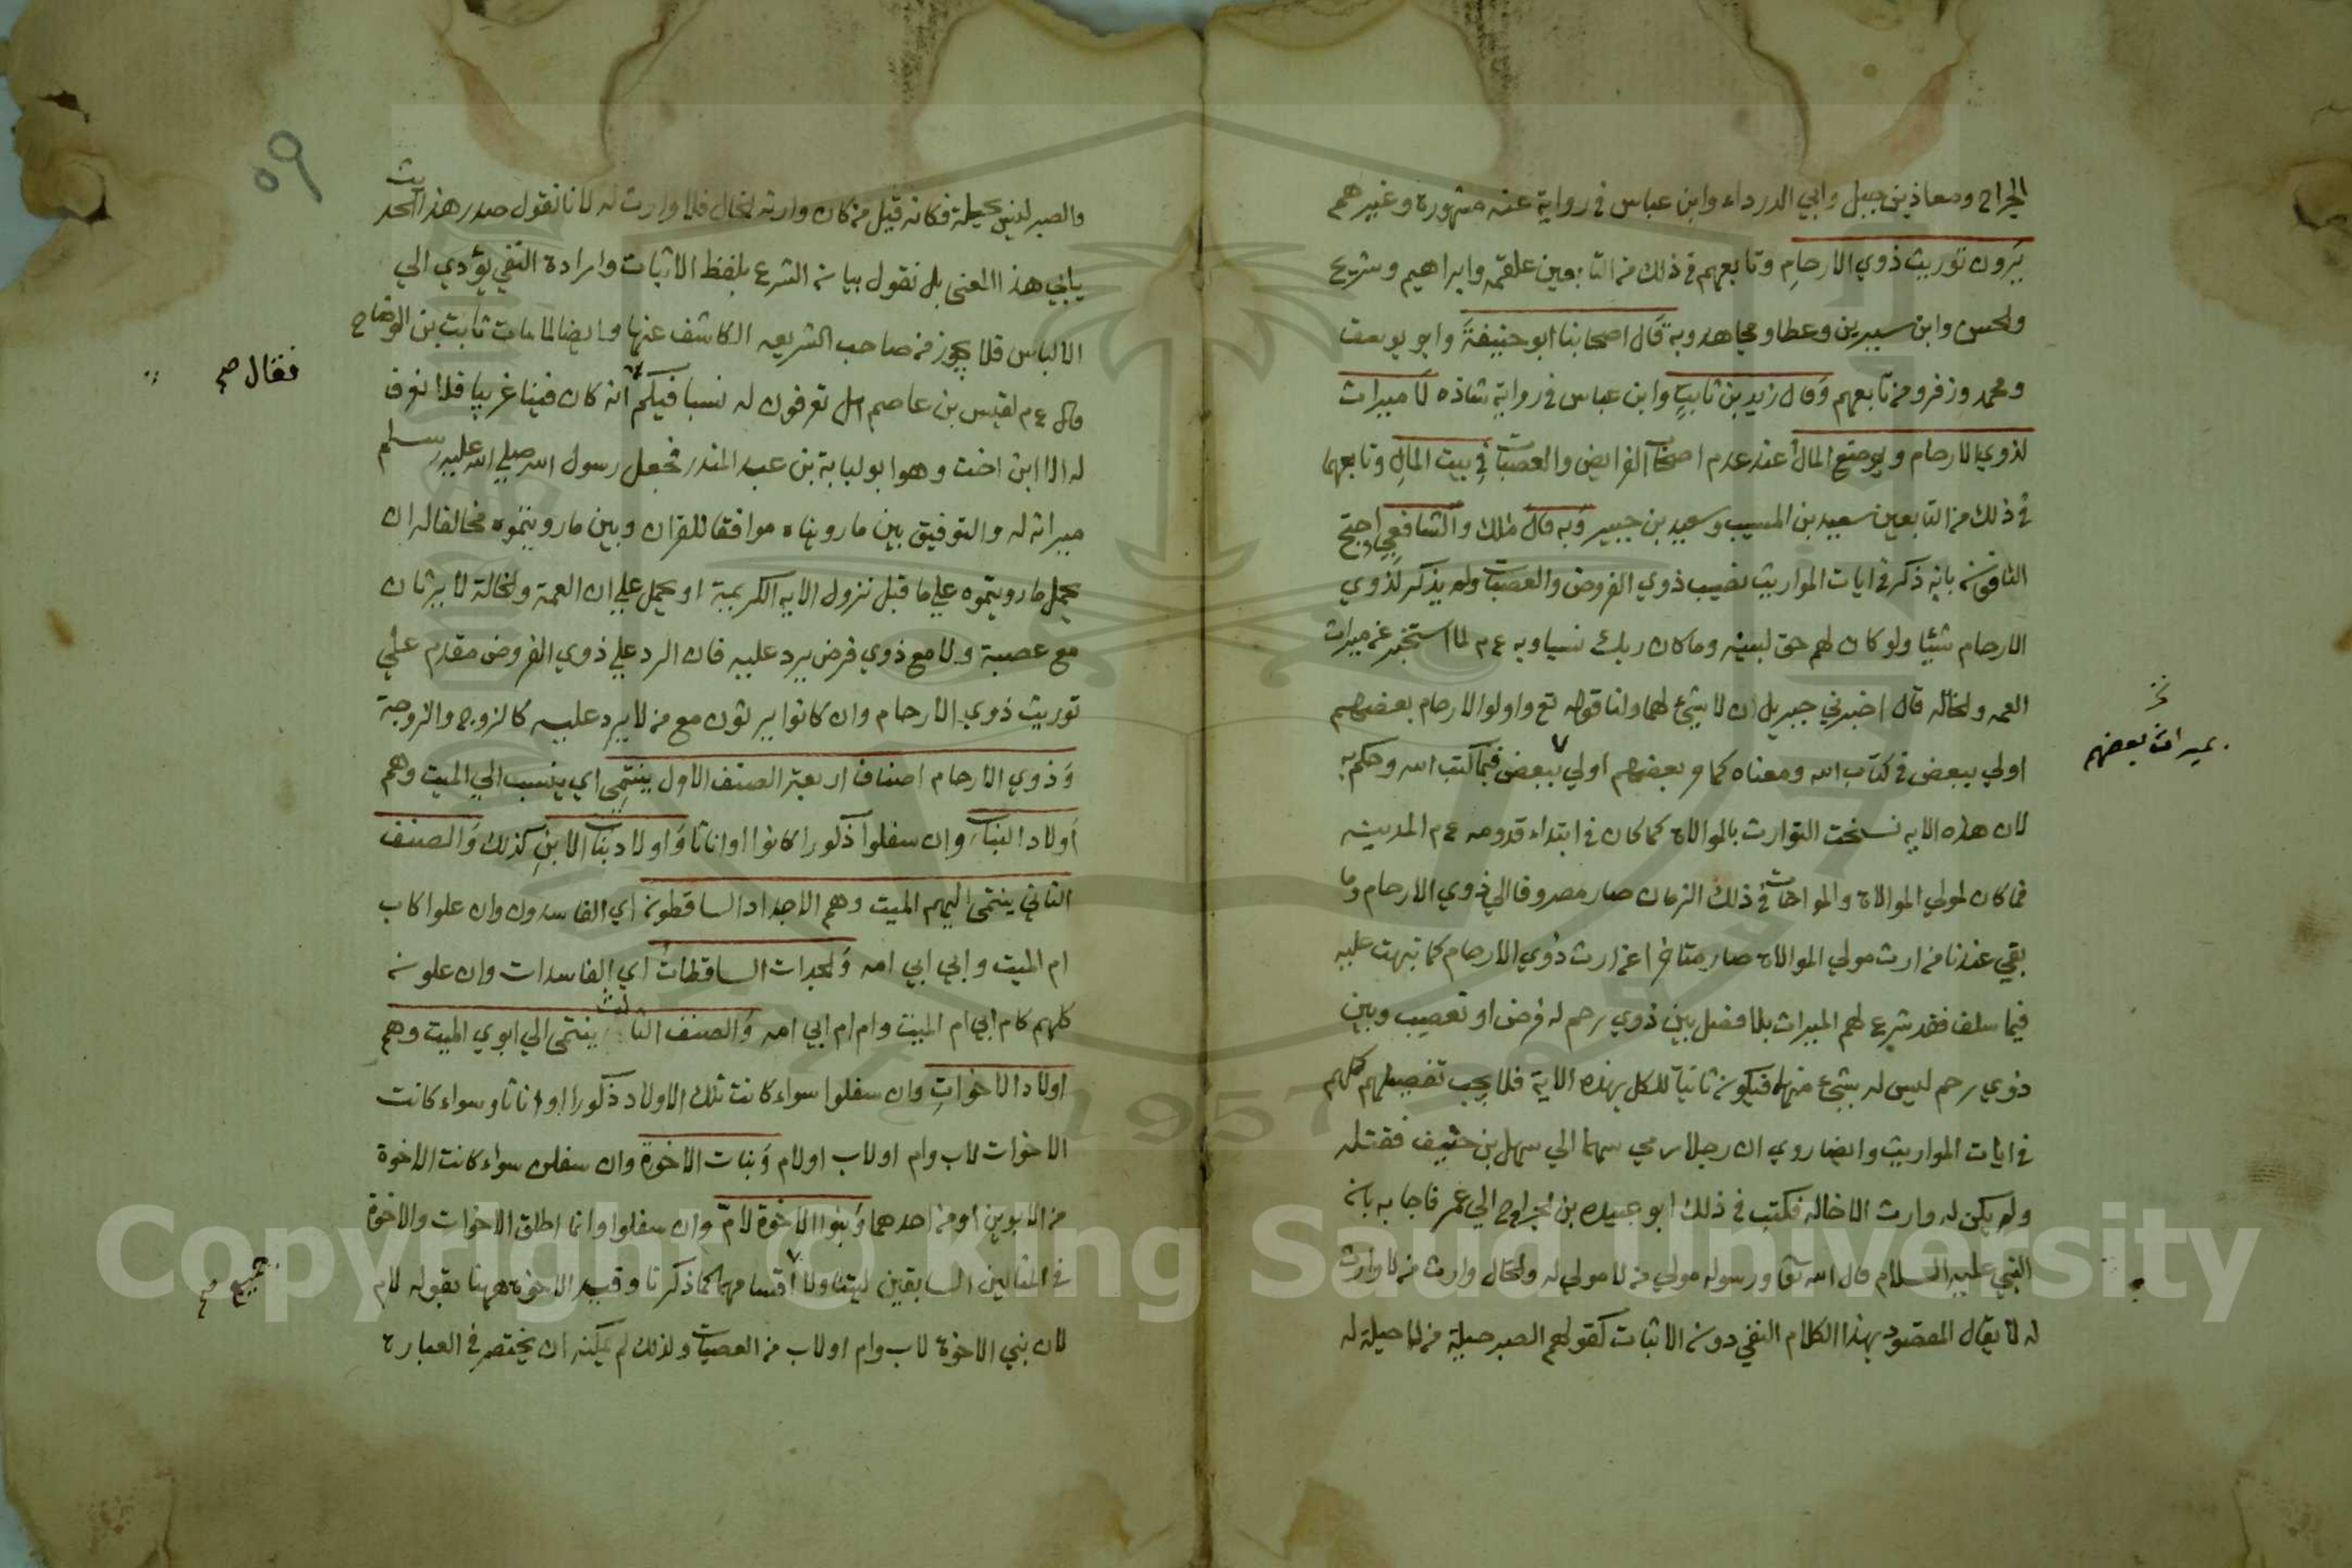 الجراح ومعاذ بن جبل وابي الدرداء وابن عباس في رواية عنه مشهورة وغيرهم
يَرَون توريث ذوي الارحامِ وتابعهم في ذلك من التابعين علقمه وابراهيم وشريح
والحسن وابن سيرين وعطا ومجاهد وبه قَال اصحابنا ابو حنيفةَ وابو يوسف
ومحمد وزفر ومن تابعهم وَقال زيد بن ثابتٍ وابن عباس في رواية شاذه لَا ميراث
لذوي الارحام ويوضع المالُ عند عدم اصحاب الفرايض والعصبات فِي بيت المالِ وتابعهما
في ذلك من التابعين سعيد بن المسيب وسعيد بن جبير وَبه قال مٰلك والشافعِي احتج
النافون بانه ذكر في ايات المواريث نصيب ذوي الفروض والعصبات ولم يذكر لذوي
الارحام شيئا ولو كان لهم حق لبينه وما كان ربك نسيا وبه ع م لما استخبر عن ميراث
العمه والخاله قال اخبرني جبريل ان لا شيء لهما ولنا قوله تع واولوا الارحام بعضهم
اولي ببعض في كتاب الله ومعناه كما وبعضهم اولي ببعض فيما كتب الله وحكم به
بميراث بعضهم
لان هذه الايه نسخت التوارث بالموالاة كما كان في ابتداء قدومه ع م المدينه
فما كان لمولي الموالاة والمواخات في ذلك الزمان صار مصروفا الي ذوي الارحام وما
بقي عندنا من ارث مولي الموالاة صار متاخرا عن ارث ذوي الارحام كما نبهت عليه
فيما سلف فقد شرع لهم الميراث بلا فصل بين ذوي رحم له فرض او تعصيب وبين
ذوي رحم ليس له شيء منهما فيكون ثابتا للكل بهذه الاية فلا يجب تفصيلهم كلهم
في ايات المواريث وايضا روي ان رجلا رمي سهما الي سهل بن حنيف فقتله
ولم يكن له وارث الا خاله فكتب في ذلك ابو عبيده بن الجراح الي عمر فاجابه بان
النبي عليه السلام قال الله تعا ورسوله مولي من لا مولي له والخال وارث من لا وارث
له لا يقال المقصود بهذا الكلام النفي دون الاثبات كقولهم الصبر حيلة من لا حيلة له
٥٩
والصبر ليس بحيلة فكانه قيل من كان وارثه الخال فلا وارث له لانا نقول صدر هذا الحديث
يابي هذا المعنى بل نقول بيان الشرع بلفظ الاثبات وارادة النفي يؤدي الي
الالباس فلا يجوز من صاحب الشريعه الكاشف عنها وايضا لما مات ثابت بن الوضاح
قال ع م لقيس بن عاصم هل تعرفون له نسبا فيكم انه كان فينا غريبا فلا نعرف
فقال صح
له الا ابن اخت وهو ابو لبابة بن عبد المنذر فجعل رسول الله صلي الله عليه وسلم
ميراثه له والتوفيق بين ما رويناه موافقا للقران وبين ما رويتموه مخالفا له ان
يحمل ما رويتموه علي ما قبل نزول الايه الكريمة او يحمل علي ان العمة والخالة لا يرثان
مع عصبة ولا مع ذوي فرض يرد عليه فان الرد علي ذوي الفروض مقدم علي
توريث ذوي الارحام وان كانوا يرثون مع من لا يرد عليه كالزوج والزوجة
وَذوي الارحام اصناف اربعة الصنف الاول ينتمِي اي ينسب الي الميت وهم
اَولاد البنات وان سفلوا ذكورا كانوا او اناثا وَاولاد بنات الابنِ كذلك وَالصنف
الثاني ينتمي اليهم الميت وهم الاجداد الساقطون اي الفاسدون وان علوا كاب
ام الميت وابي ابي امه وَالجدات الساقطات اي الفاسدات وان علون
كلهم كام ابي ام الميت وام ام ابي امه وَالصنف الثالث ينتمي الي ابوي الميت وهم
اولاد الاخواتِ وان سفلوا سواء كانت تلك الاولاد ذكورا او اناثا وسواء كانت
الاخوات لاب وام او لاب او لام وَبنات الاخوة وان سفلن سواء كانت الاخوة
من الابوين او من احدهما وَبنوا الاخوة لامّ وان سفلوا وانما اطلق الاخوات والاخوة
في المثالين السابقين ليتناولا اقسامهما كما ذكرنا وقيد الاخوة ههنا بقوله لام
جميع صح
لان بني الاخوة لاب وام او لاب من العصبات ولذلك لم يمكنه ان يختصر في العبارة
Copyright © King Saud University
1957